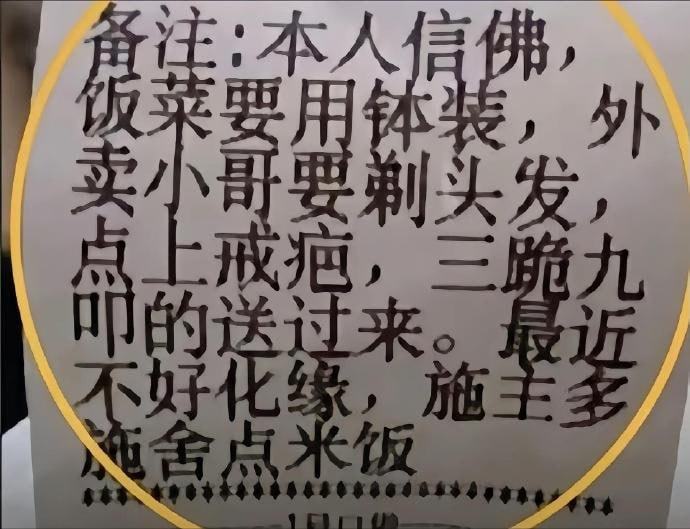 备注:本人信佛,
饭菜要用钵装,外
卖小哥要剃头发,
点上戒疤,三跪九
叩的送过来。最近
不好化缘,施主多
施舍点米饭